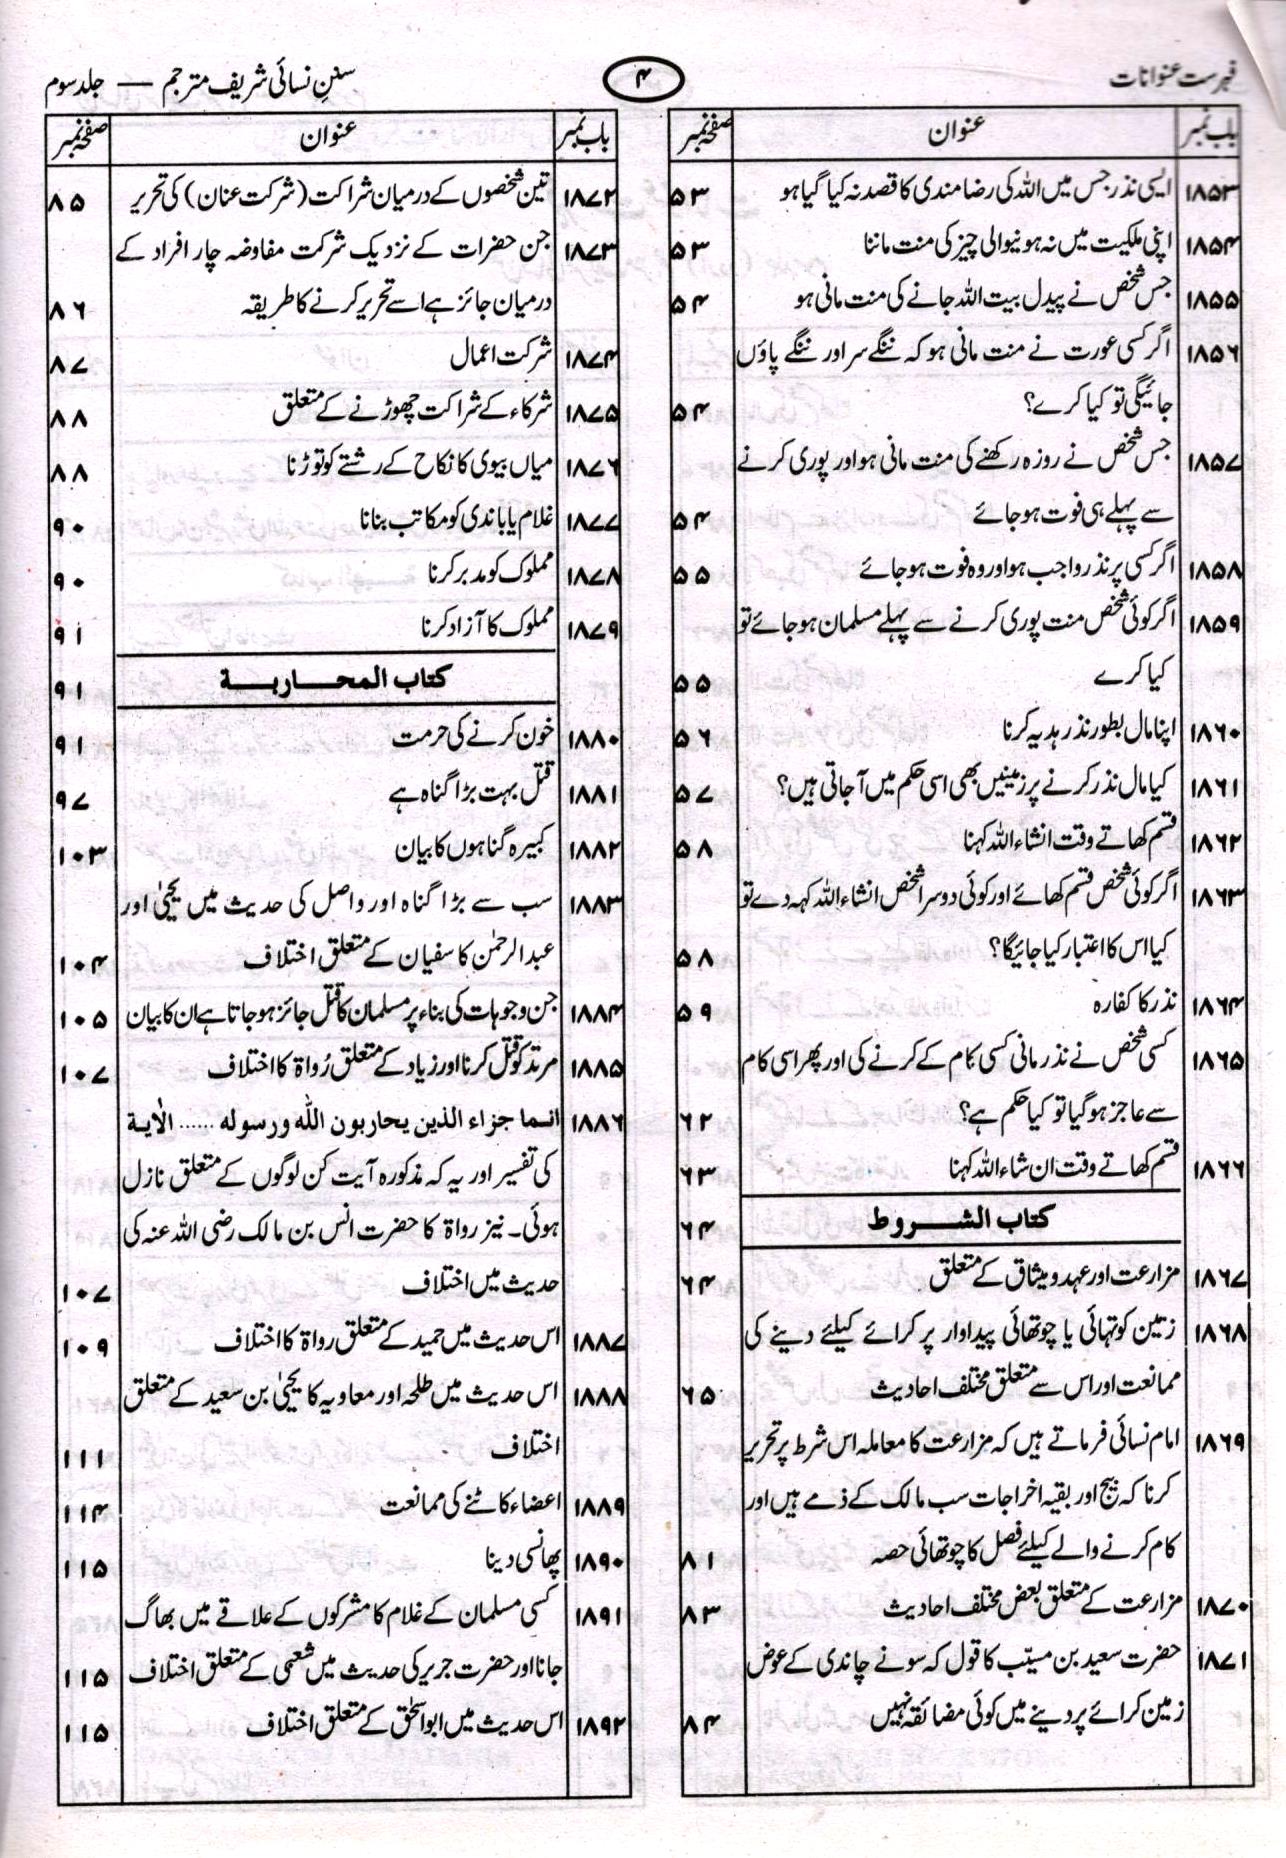 فہرست عنوانات
۴
سنن نسائی شریف مترجم — جلد سوم
باب نمبر عنوان صفحہ نمبر
۱۸۵۳ ایسی نذر جس میں اللہ کی رضا مندی کا قصد نہ کیا گیا ہو ۵۳
۱۸۵۴ اپنی ملکیت میں نہ ہونیوالی چیز کی منت ماننا ۵۳
۱۸۵۵ جس شخص نے پیدل بیت اللہ جانے کی منت مانی ہو ۵۴
۱۸۵۶ اگر کسی عورت نے منت مانی ہو کہ ننگے سر اور ننگے پاؤں
جائیگی تو کیا کرے؟ ۵۴
۱۸۵۷ جس شخص نے روزہ رکھنے کی منت مانی ہو اور پوری کرنے
سے پہلے ہی فوت ہو جائے ۵۴
۱۸۵۸ اگر کسی پر نذر واجب ہو اور وہ فوت ہو جائے ۵۵
۱۸۵۹ اگر کوئی شخص منت پوری کرنے سے پہلے مسلمان ہو جائے تو
کیا کرے ۵۵
۱۸۶۰ اپنا مال بطور نذر ہدیہ کرنا ۵۶
۱۸۶۱ کیا مال نذر کرنے پر زمینیں بھی اسی حکم میں آ جاتی ہیں؟ ۵۷
۱۸۶۲ قسم کھاتے وقت انشاء اللہ کہنا ۵۸
۱۸۶۳ اگر کوئی شخص قسم کھائے اور کوئی دوسرا شخص انشاء اللہ کہہ دے تو
کیا اس کا اعتبار کیا جائیگا؟ ۵۸
۱۸۶۴ نذر کا کفارہ ۵۹
۱۸۶۵ کسی شخص نے نذر مانی کسی کام کے کرنے کی اور پھر اسی کام
سے عاجز ہو گیا تو کیا حکم ہے؟ ۶۲
۱۸۶۶ قسم کھاتے وقت ان شاء اللہ کہنا ۶۳
كتاب الشروط ۶۴
۱۸۶۷ مزارعت اور عہد و میثاق کے متعلق ۶۴
۱۸۶۸ زمین کو تہائی یا چوتھائی پیداوار پر کرائے کیلئے دینے کی
ممانعت اور اس سے متعلق مختلف احادیث ۶۵
۱۸۶۹ امام نسائی فرماتے ہیں کہ مزارعت کا معاملہ اس شرط پر تحریر
کرنا کہ بیج اور بقیہ اخراجات سب مالک کے ذمے ہیں اور
کام کرنے والے کیلئے فصل کا چوتھائی حصہ ۸۱
۱۸۷۰ مزارعت کے متعلق بعض مختلف احادیث ۸۳
۱۸۷۱ حضرت سعید بن مسیّب کا قول کہ سونے چاندی کے عوض
زمین کرائے پر دینے میں کوئی مضائقہ نہیں ۸۴
باب نمبر عنوان صفحہ نمبر
۱۸۷۲ تین شخصوں کے درمیان شراکت (شرکت عنان) کی تحریر ۸۵
۱۸۷۳ جن حضرات کے نزدیک شرکت مفاوضہ چار افراد کے
درمیان جائز ہے اسے تحریر کرنے کا طریقہ ۸۶
۱۸۷۴ شرکت اعمال ۸۷
۱۸۷۵ شرکاء کے شراکت چھوڑنے کے متعلق ۸۸
۱۸۷۶ میاں بیوی کا نکاح کے رشتے کو توڑنا ۸۸
۱۸۷۷ غلام یا باندی کو مکاتب بنانا ۹۰
۱۸۷۸ مملوک کو مدبر کرنا ۹۰
۱۸۷۹ مملوک کا آزاد کرنا ۹۱
كتاب المحاربة ۹۱
۱۸۸۰ خون کرنے کی حرمت ۹۱
۱۸۸۱ قتل بہت بڑا گناہ ہے ۹۷
۱۸۸۲ کبیرہ گناہوں کا بیان ۱۰۳
۱۸۸۳ سب سے بڑا گناہ اور واصل کی حدیث میں یحییٰ اور
عبدالرحمٰن کا سفیان کے متعلق اختلاف ۱۰۴
۱۸۸۴ جن وجوہات کی بناء پر مسلمان کا قتل جائز ہو جاتا ہے ان کا بیان ۱۰۵
۱۸۸۵ مرتد کو قتل کرنا اور زیاد کے متعلق رُواۃ کا اختلاف ۱۰۷
۱۸۸۶ انما جزاء الذين يحاربون الله ورسوله ...... الآية
کی تفسیر اور یہ کہ مذکورہ آیت کن لوگوں کے متعلق نازل
ہوئی۔ نیز رواۃ کا حضرت انس بن مالک رضی اللہ عنہ کی
حدیث میں اختلاف ۱۰۷
۱۸۸۷ اس حدیث میں حمید کے متعلق رواۃ کا اختلاف ۱۰۹
۱۸۸۸ اس حدیث میں طلحہ اور معاویہ کا یحییٰ بن سعید کے متعلق
اختلاف ۱۱۱
۱۸۸۹ اعضاء کاٹنے کی ممانعت ۱۱۴
۱۸۹۰ پھانسی دینا ۱۱۵
۱۸۹۱ کسی مسلمان کے غلام کا مشرکوں کے علاقے میں بھاگ
جانا اور حضرت جریر کی حدیث میں شعمی کے متعلق اختلاف ۱۱۵
۱۸۹۲ اس حدیث میں ابو اسحٰق کے متعلق اختلاف ۱۱۵